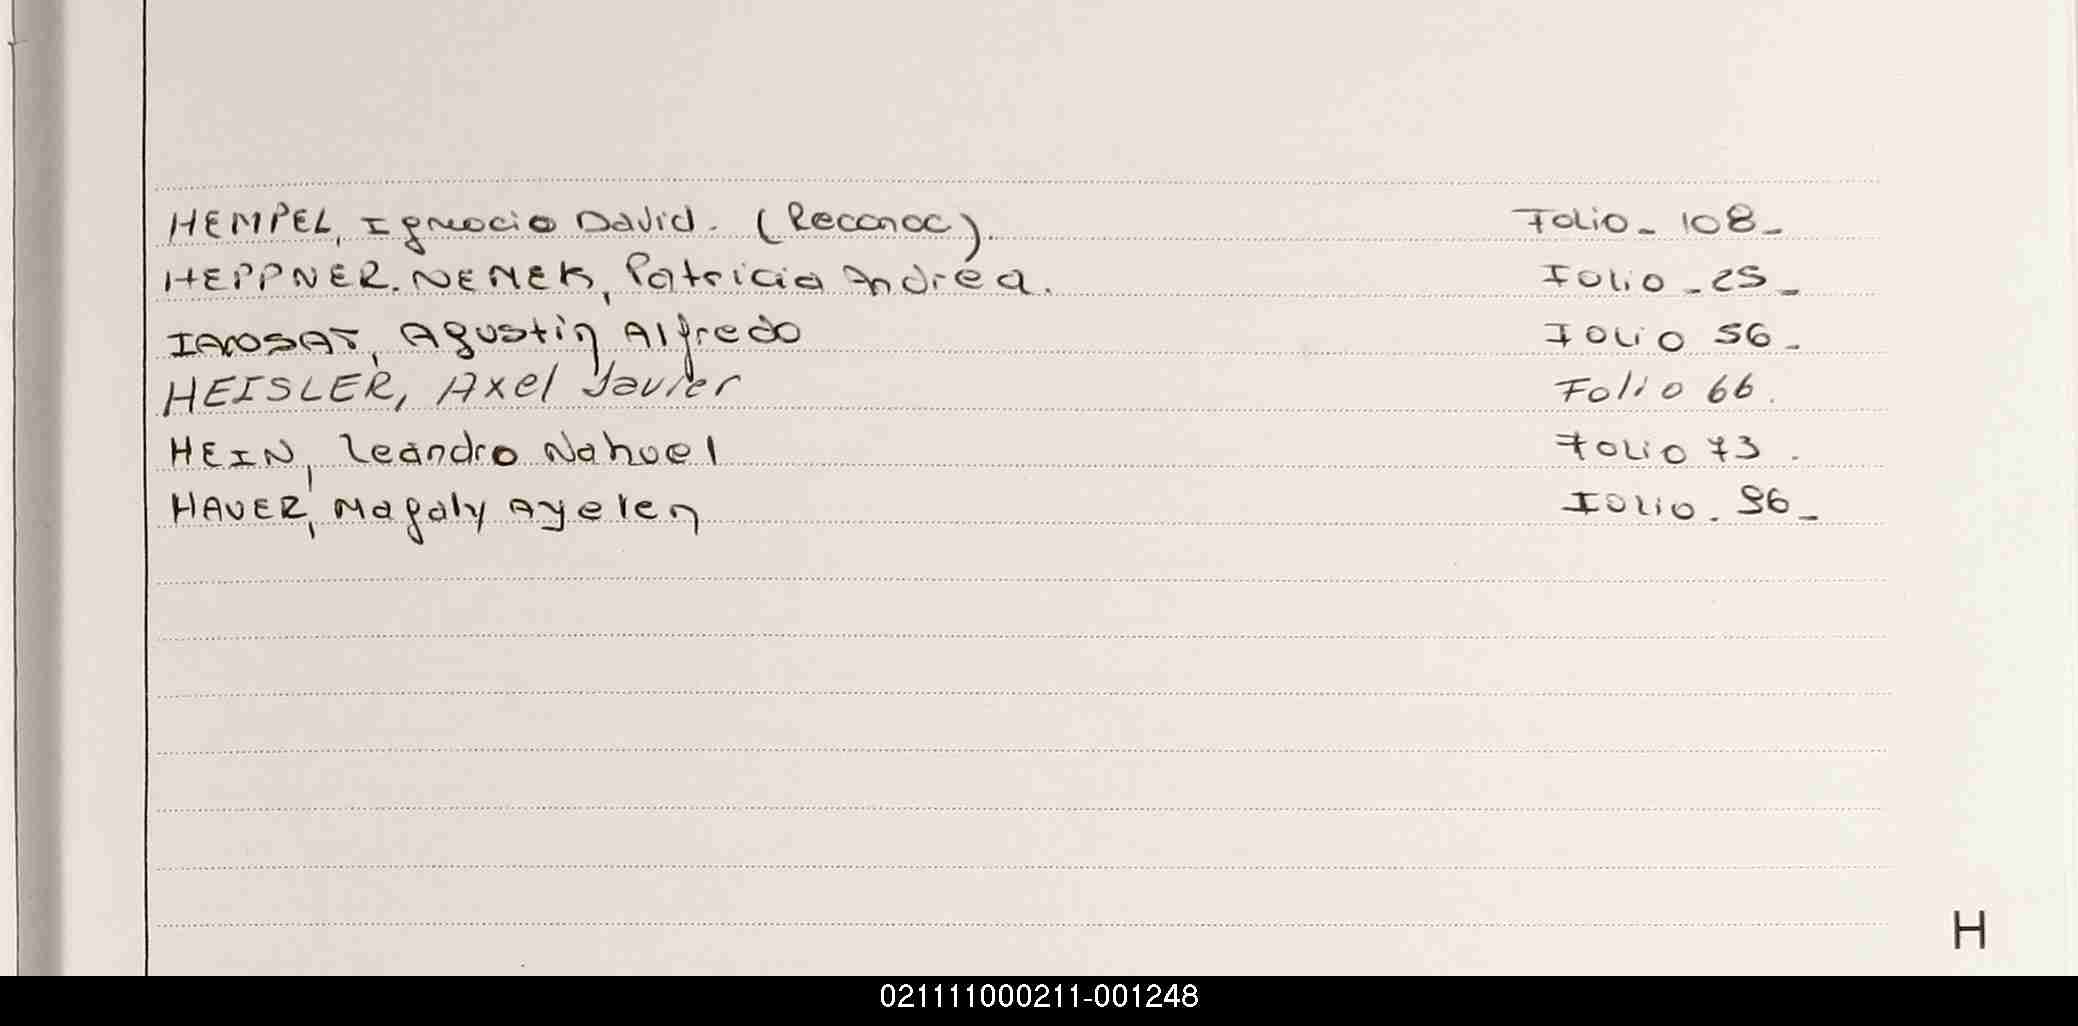 HEMPEL, Ignacio David. (Reconoc). Folio - 108 -
HEPPNER. NEMEK, Patricia Andrea. Folio - 25 -
Agustin Alfredo Folio 56 -
HEISLER, Axel Javier Folio 66.
HEIN, Leandro Nahuel Folio 73.
HAUER, Magaly Ayelen Folio. 96 -
H
021111000211-001248